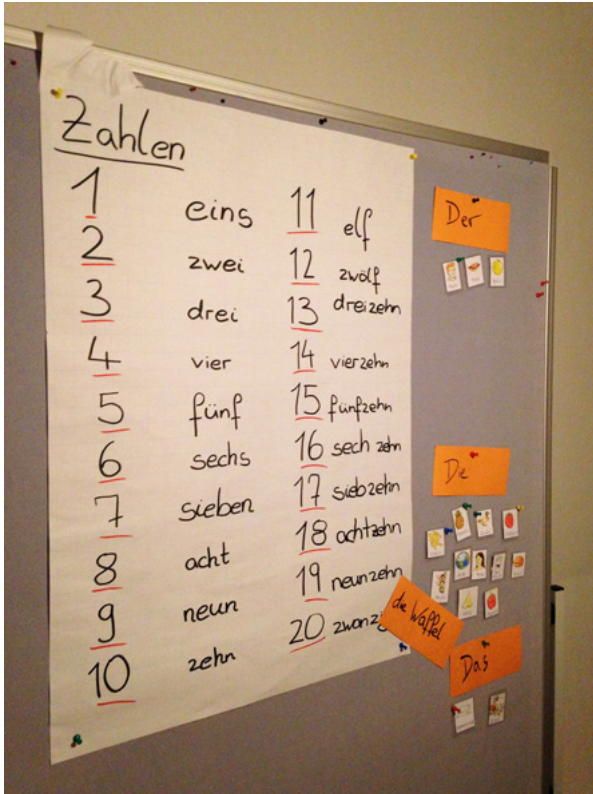 Zahlen
1 eins
2 zwei
3 drei
4 vier
5 fünf
6 sechs
7 sieben
8 acht
9 neun
10 zehn
11 elf
12 zwölf
13 dreizehn
14 vierzehn
15 fünfzehn
16 sech zehn
17 siebzehn
18 achtzehn
19 neunzehn
20
Der
Die
die Waffel
Das